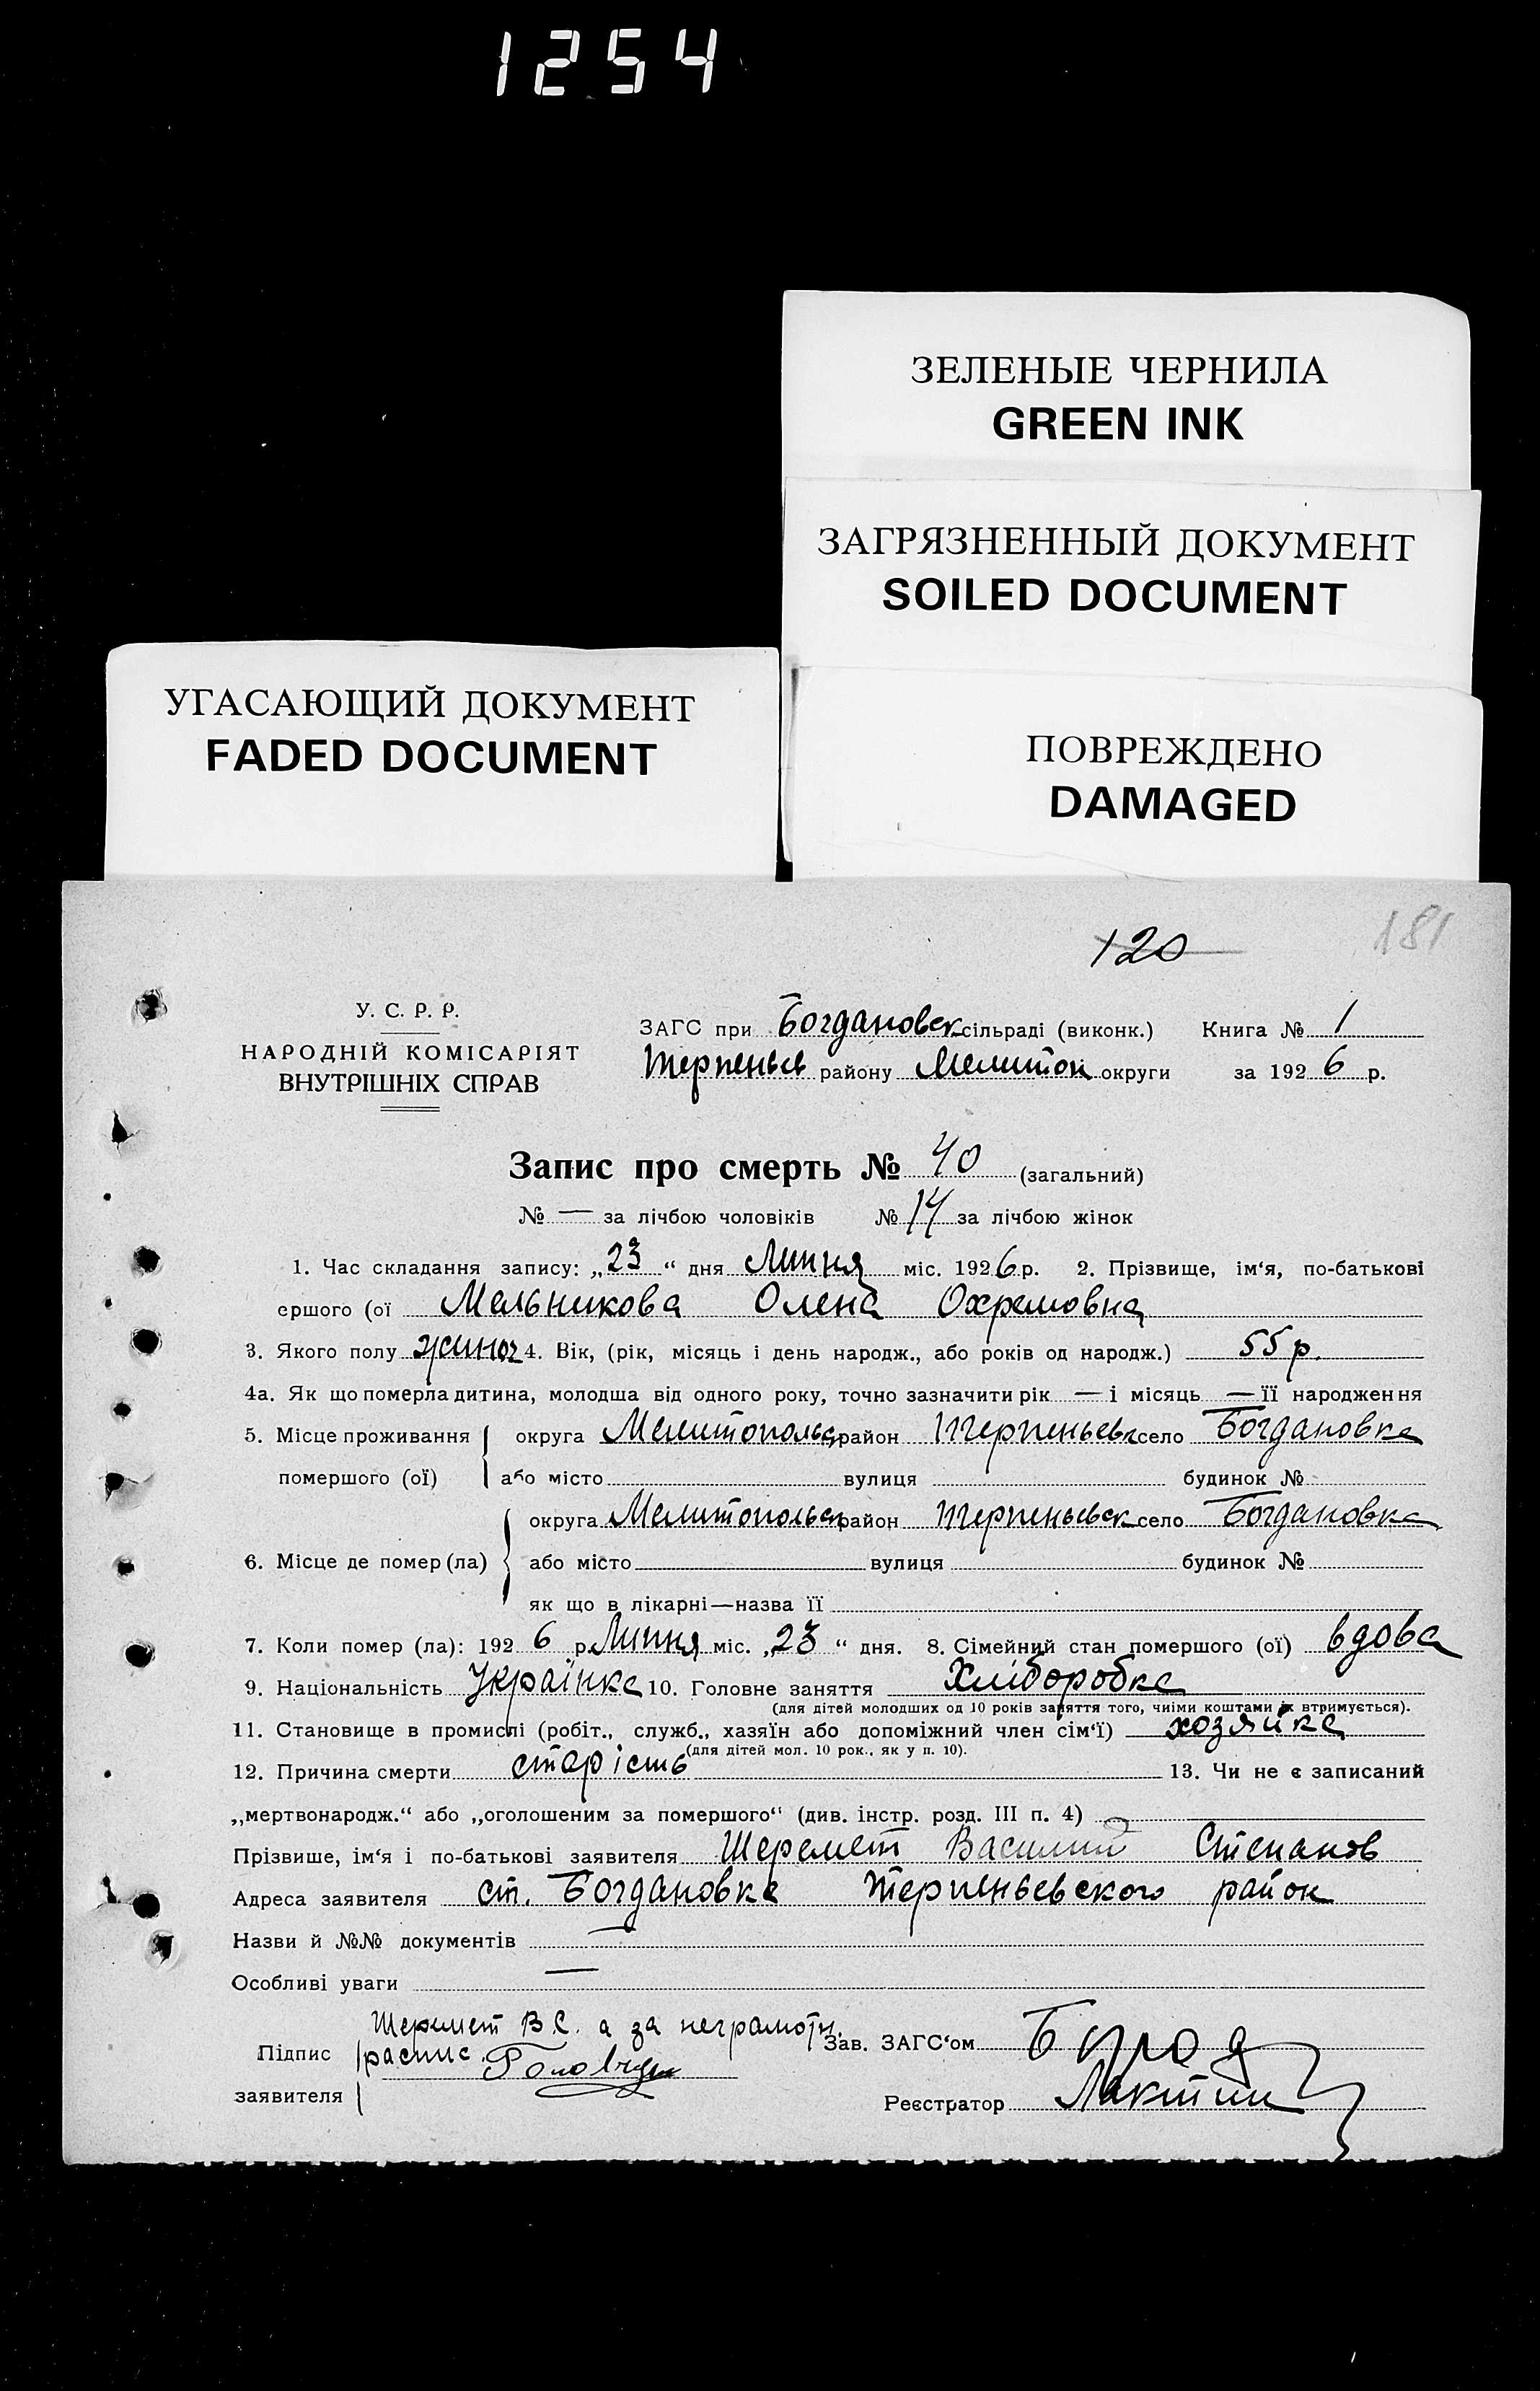 1254
ЗЕЛЕНЫЕ ЧЕРНИЛА
GREEN INK
ЗАГРЯЗНЕННЫЙ ДОКУМЕНТ
SOILED DOCUMENT
УГАСАЮЩИЙ ДОКУМЕНТ
FADED DOCUMENT
ПОВРЕЖДЕНО
DAMAGED
120 181
У. С. Р. Р.
НАРОДНІЙ КОМІСАРІЯТ
ВНУТРІШНІХ СПРАВ
ЗАГС при Богдановск сільраді (виконк.) Книга № 1
Терпеньев району Мелитоп округи за 1926 р.
Запис про смерть № 40 (загальний)
№ — за лічбою чоловіків № 14 за лічбою жінок
1. Час складання запису: „23“ дня Липня міс. 1926 р. 2. Прізвище, ім‘я, по-батькові
ершого (ої Мельникова Олена Охремовна
3. Якого полу жиноч 4. Вік, (рік, місяць і день народж., або років од народж.) 55 р.
4а. Як що померла дитина, молодша від одного року, точно зазначити рік — і місяць — її народження
5. Місце проживання помершого (ої) округа Мелитопольс район Терпеньевк село Богдановка
або місто вулиця будинок №
6. Місце де помер (ла) округа Мелитопольск район Терпеньевск село Богдановка
або місто вулиця будинок №
як що в лікарні—назва її
7. Коли помер (ла): 1926 р. Липня міс. „23“ дня. 8. Сімейний стан помершого (ої) вдова
9. Національність Українка 10. Головне заняття Хліборобка
(для дітей молодших од 10 років заняття того, чиїми коштами їх втримується).
11. Становище в промислі (робіт., служб., хазяїн або допоміжний член сім‘ї) хозяйка
(для дітей мол. 10 рок., як у п. 10).
12. Причина смерти старість 13. Чи не є записаний
„мертвонародж.“ або „оголошеним за помершого“ (див. інстр. розд. III п. 4)
Прізвише, ім‘я і по-батькові заявителя Шеремет Василий Степанов
Адреса заявителя ст. Богдановка Терпеньевского район
Назви й №№ документів —
Особливі уваги —
Шеремет В.С. а за неграмотн.
Підпис распис.
заявителя
Зав. ЗАГС‘ом
Реєстратор Лактин